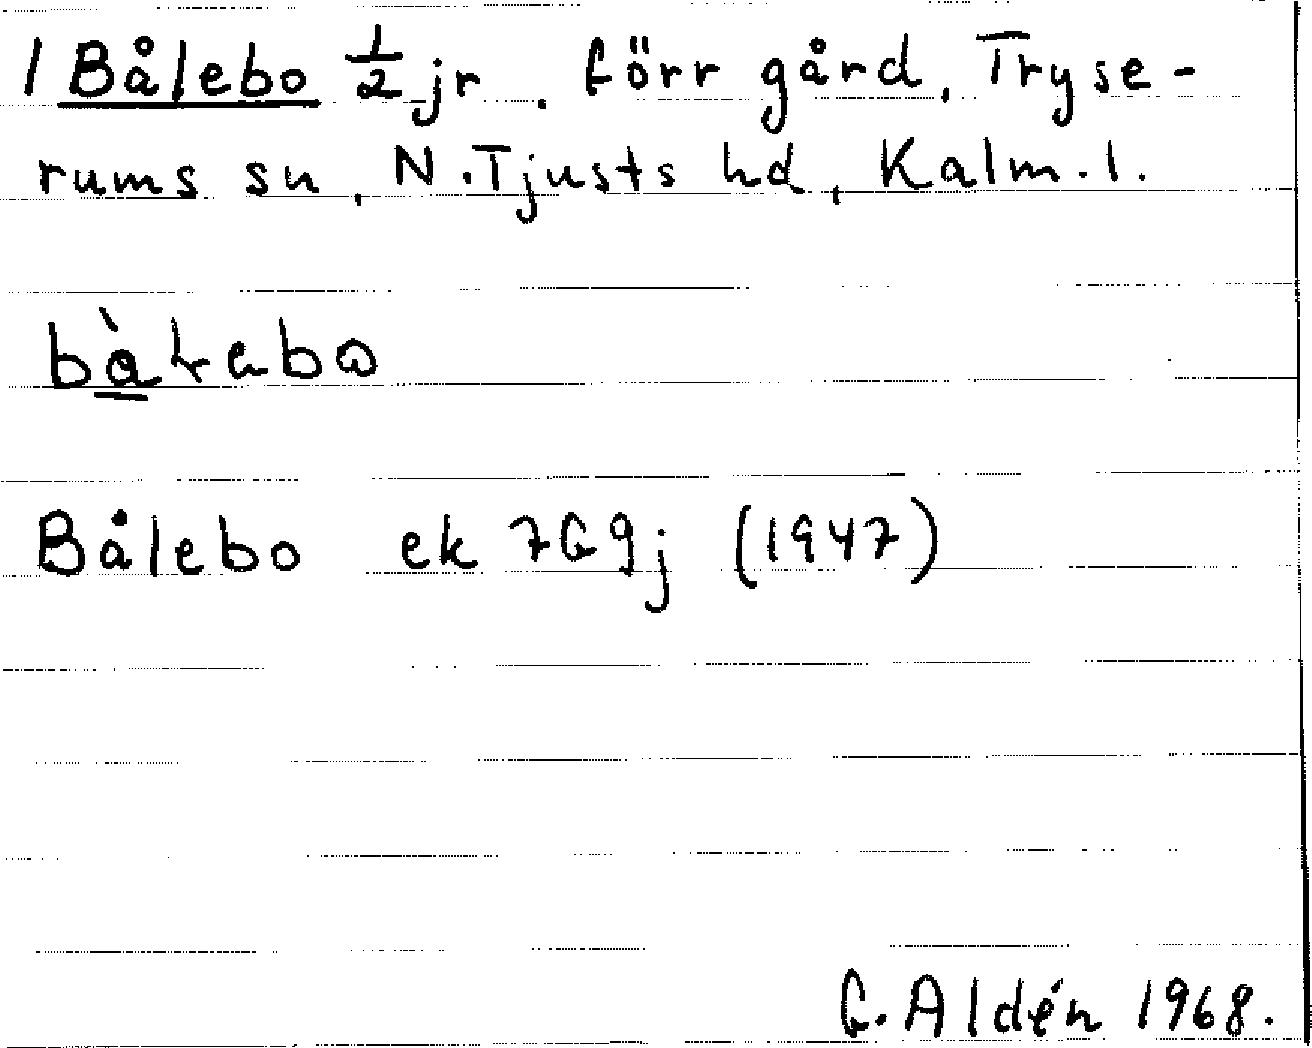 1 Bålebo ½ jr. förr gård, Tryse-
rums sn, N. Tjusts hd, Kalm. l.
Bålebo ek 7G9j (1947)
G. Aldén 1968.